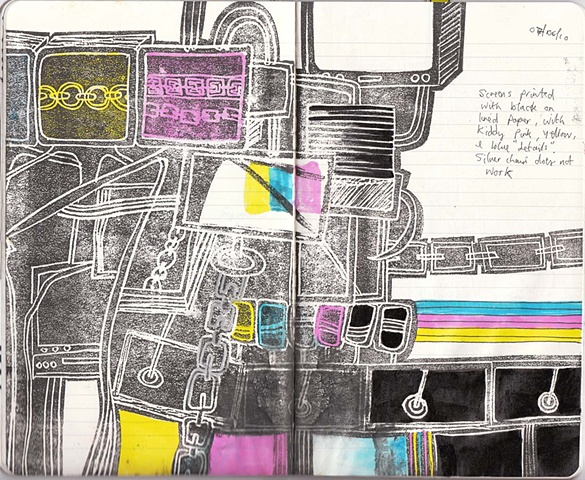 07/06/10
Screens printed
with black on
lined paper, with
kiddy pink, yellow,
& blue "details".
Silver chain does not
work